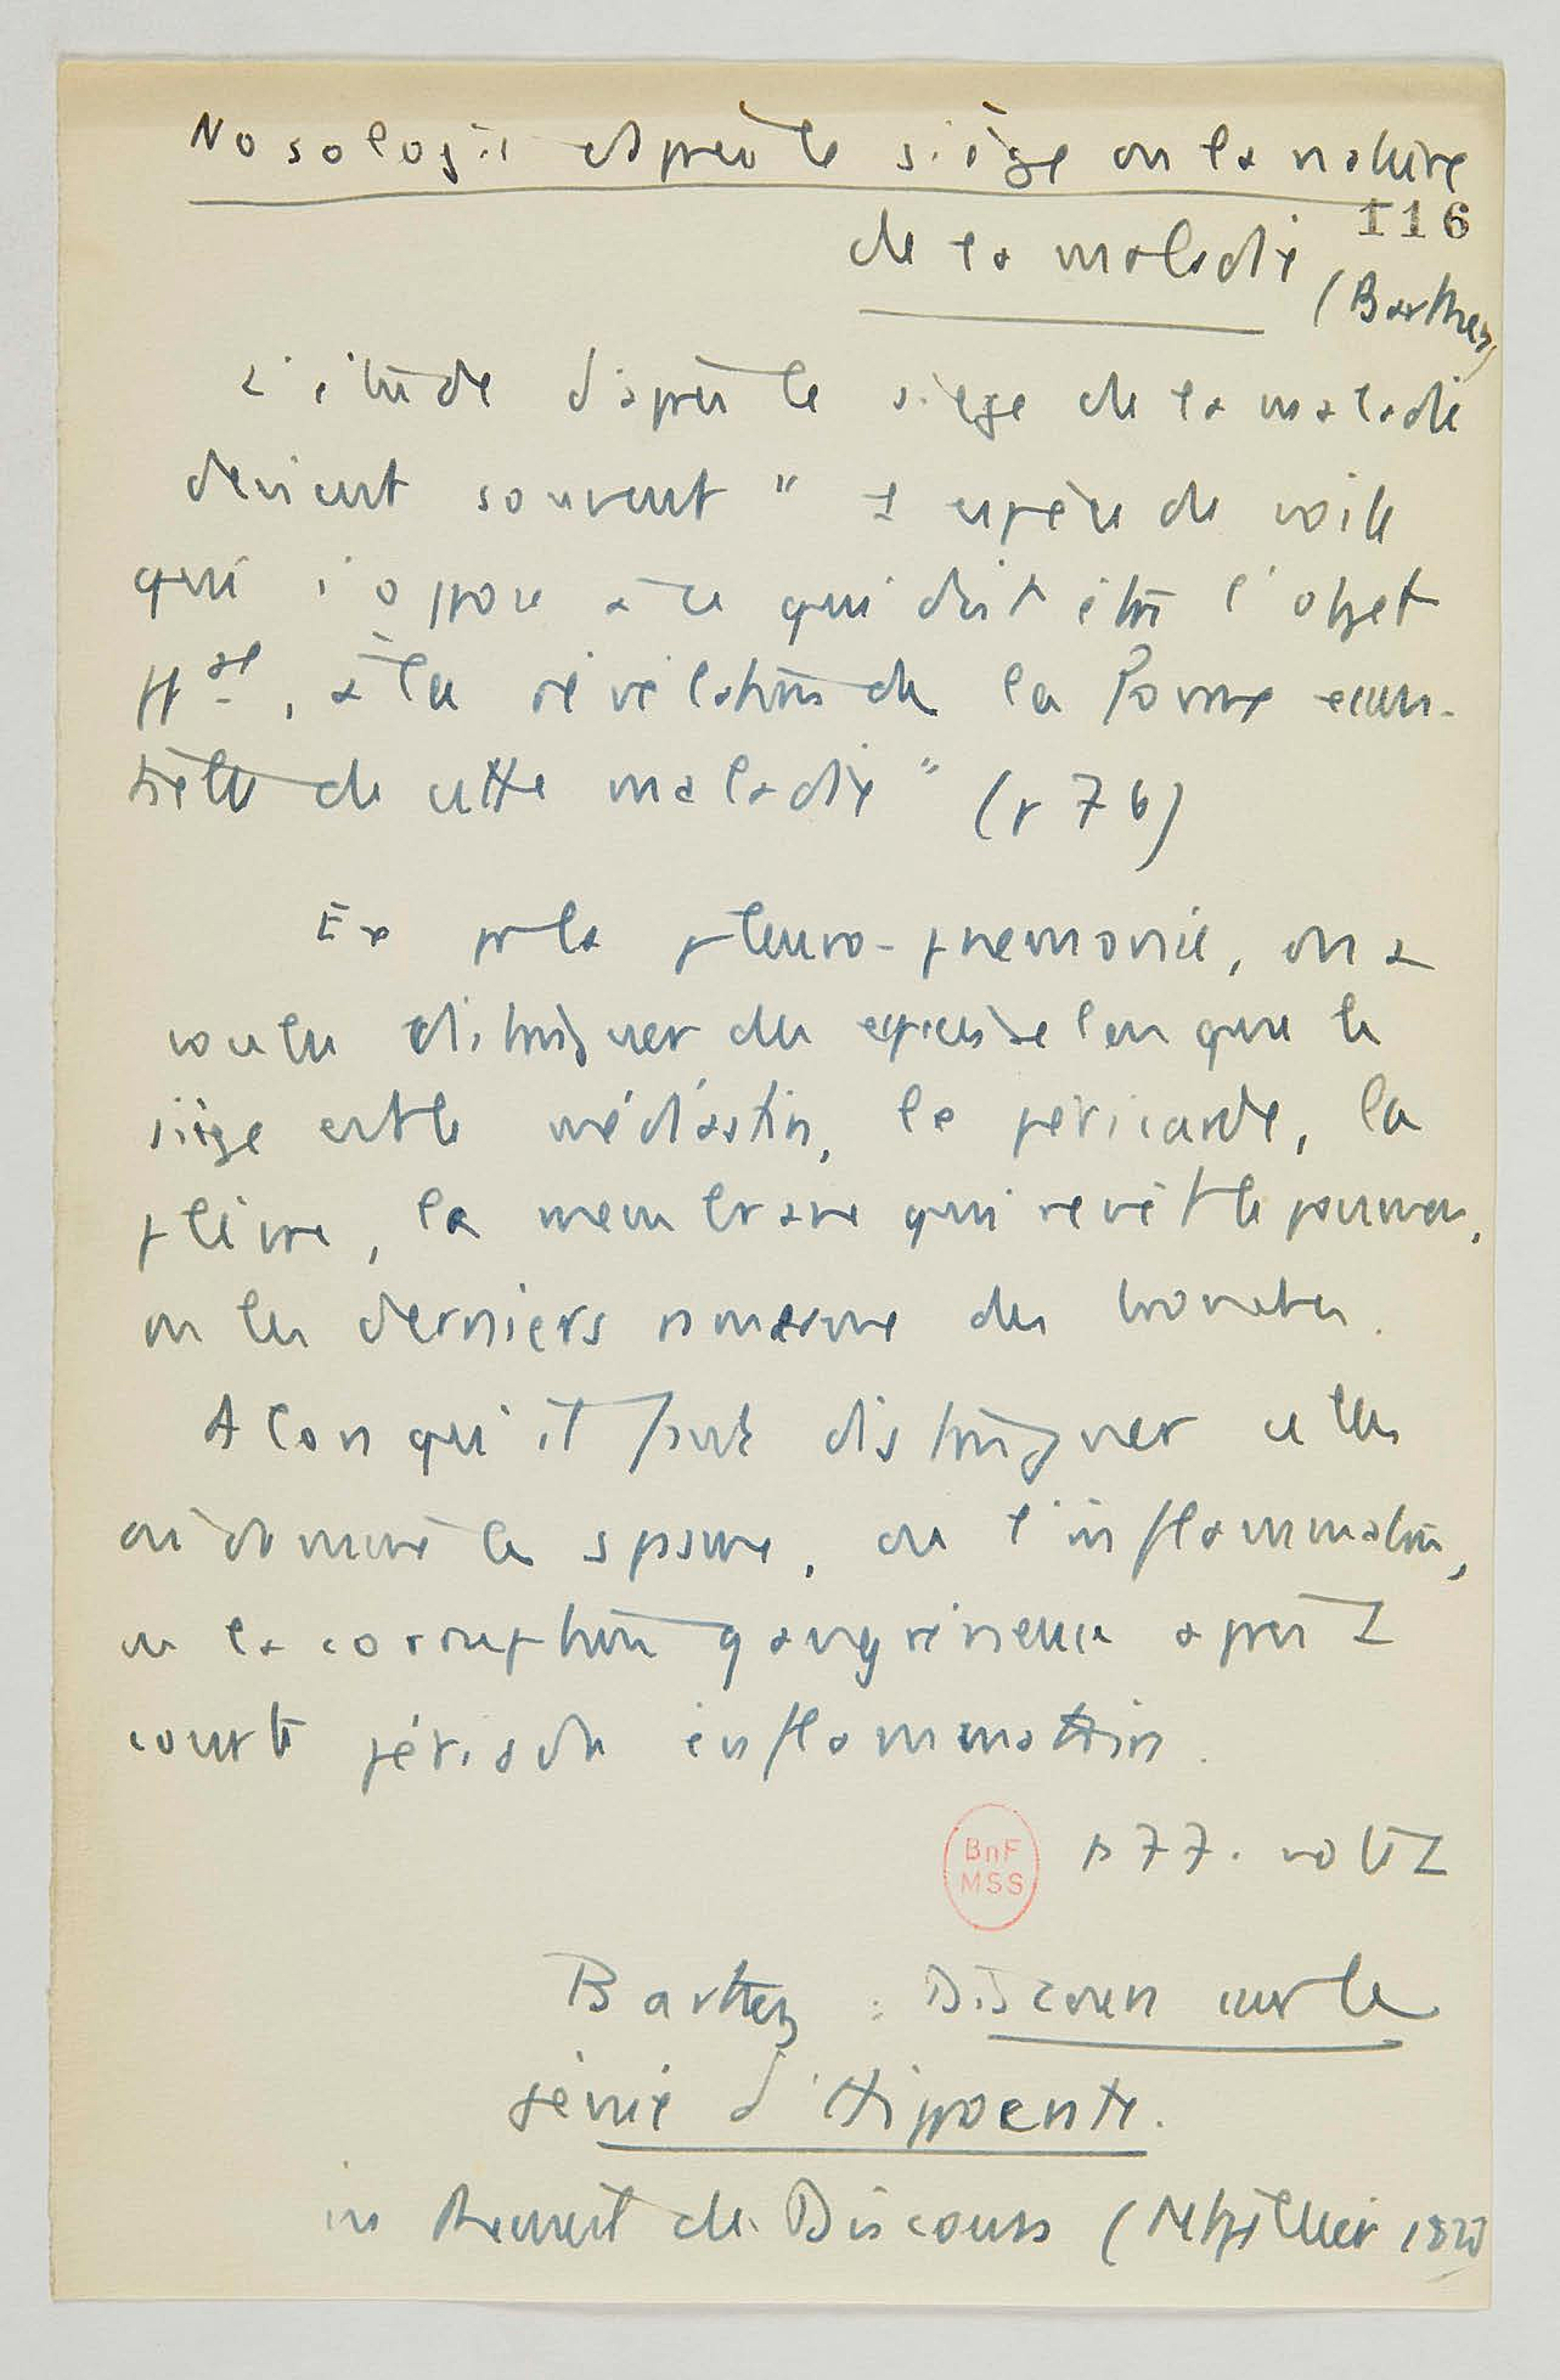 Nosologie d'après le siège ou la nature
116
de la maladie (Barthez)
L'étude d'après le siège de la maladie
devient souvent " 1 espèce de voile
qui s'oppose à ce qui doit être l'objet
ppal, à la révélation de la forme essen-
tielle de cette maladie " (p 76)
Ex pr la pleuro-pnemonie, on a
voulu distinguer des espèces selon que le
siège est le médiastin, le péricarde, la
plèvre, la membrane qui revêt le poumon,
ou les derniers rameaux des bronches.
Alors qu'il faut distinguer celles
où domine le spasme, ou l'inflammation,
ou la corruption gangréneuse après 1
courte période inflammation.
BnF
MSS
p 77. note 2
Barthez : Discours sur le
génie d'Hippocrate.
in Recueil de Discours (Mtpellier 1820